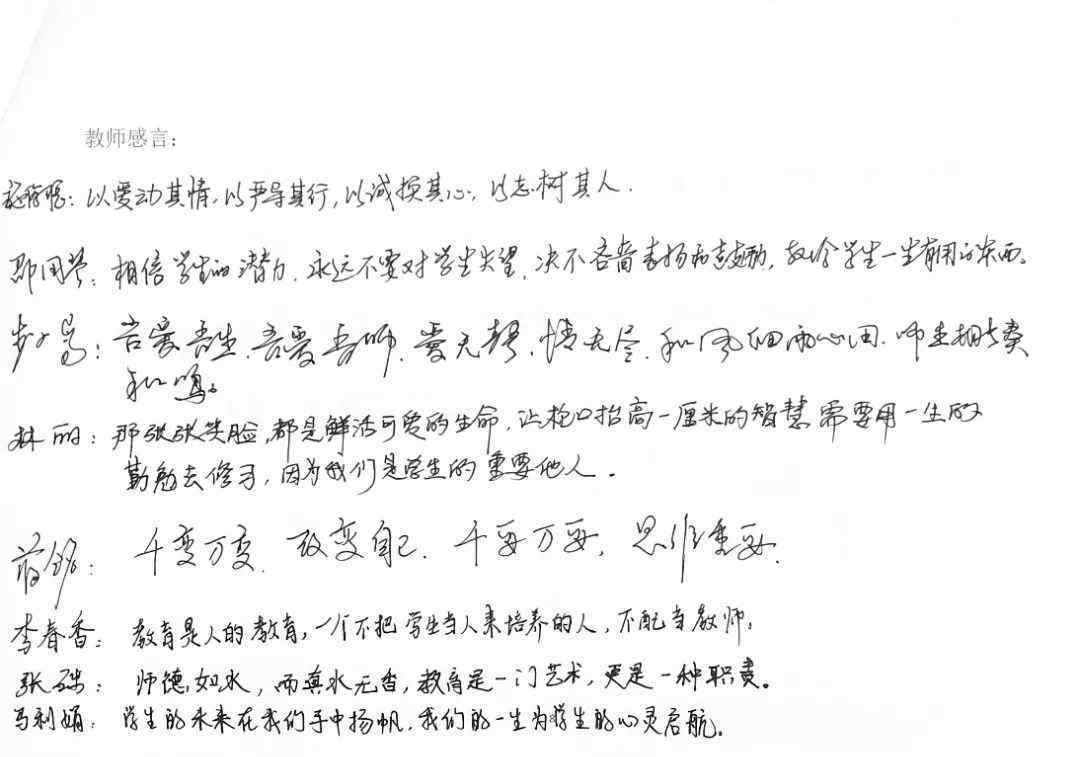 教师感言:
以爱动其情,以严导其行,以诚换其心,以志树其人.
相信学生的潜力,永远不要对学生失望,决不吝啬表扬和鼓励,教给学生一生有用的东西。
吾爱吾生,吾爱吾师,爱无声,情无尽,和风细雨心田,师生相
和鸣。
林丽:那张张笑脸,都是鲜活可爱的生命,让枪口抬高一厘米的智慧需要用一生的
勤勉去修习,因为我们是学生的重要他人.
千变万变,改变自己.千要万要,思维重要.
李春香:教育是人的教育,一个不把学生当人来培养的人,不配当教师;
张:师德如水,而真水无香,教育是一门艺术,更是一种职责。
马利娟:学生的未来在我们手中扬帆,我们的一生为学生的心灵启航。